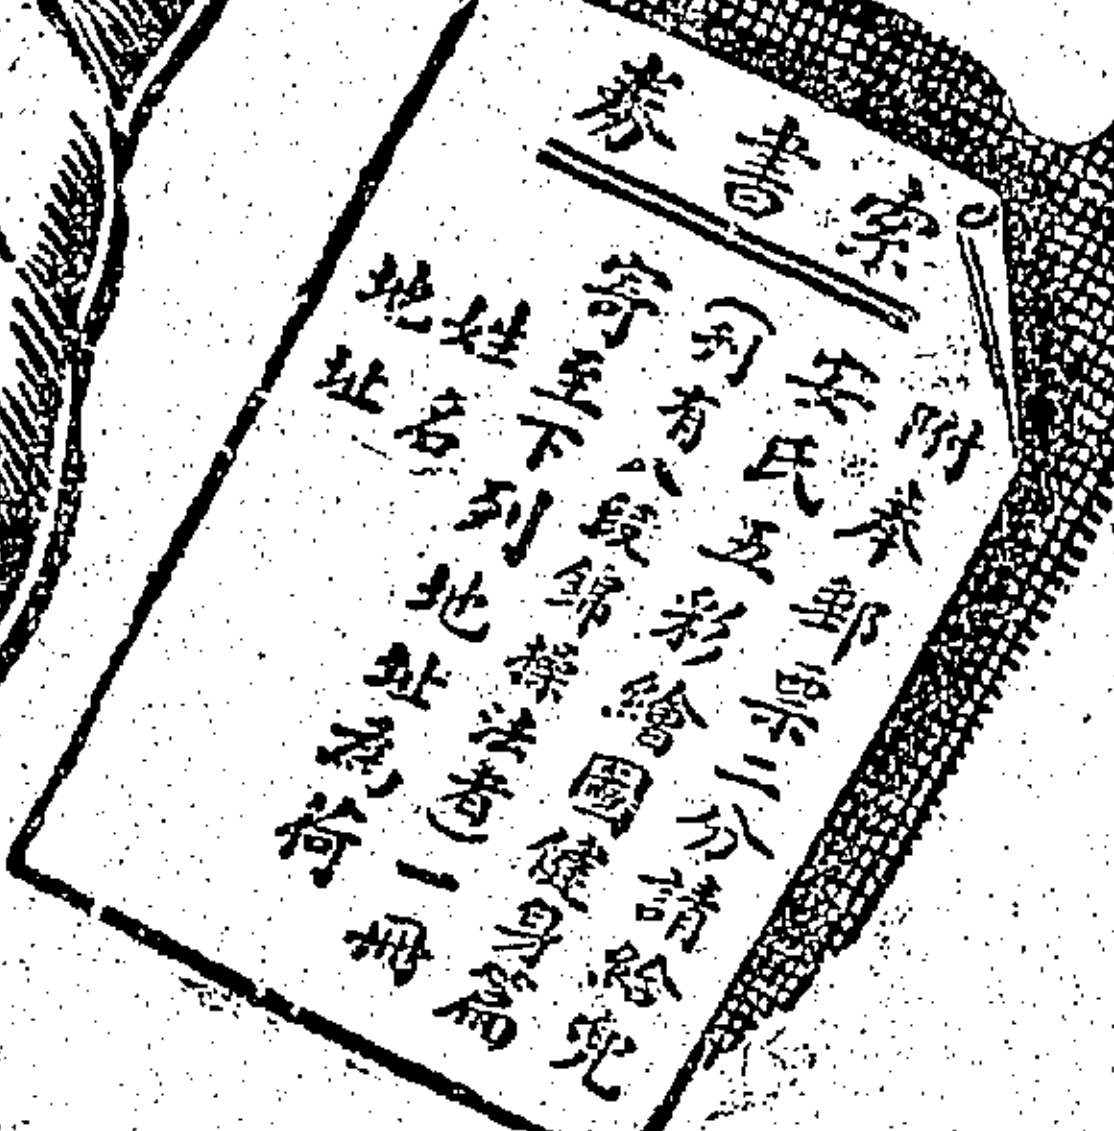 索書券
附奉郵票二分請給兜
安氏五彩繪圖健身篇
(刊有八段錦藥法者)一冊
寄至下列地址為荷
姓名
地址